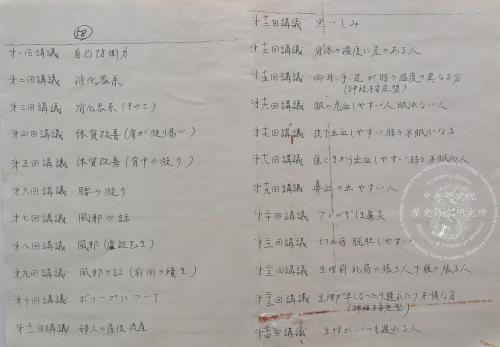 58
才一回講議 自己防衛力
才二回講議 消化器系
才三回講議 消化器系(その二)
才四回講議 体質改善(肩が凝り易い)
才五回講議 体質改善(背中の凝り)
才六回講議 腰の凝り
才七回講議 風邪の話
才八回講議 風邪(虚証も含)
才九回講議 風邪の話(前回の續き)
才十回講議 ポリープについて
才十一回講議 婦人の産後流産
才十二回講議 黒いしみ
才十三回講議 身体の温度に差のある人
才十五回講議 両手、足が時々温度の異なる方
(神経不安定型)
才十六回講議 眼の充血しやすい人 眠れない人
才十七回講議 皮下出血しやすい 時々不眠になる
才十八回講議 歯ぐきから出血しやすい 時々不眠の人
才十九回講議 鼻血の出やすい人
才二十回講議 アレルギー性鼻炎
才二十一回講議 切れ痔 脱肛しやすい
才二十二回講議 生理前 乳房の張る人 下腹の張る人
才二十三回講議 生理が早くなったり遅れたり不順な方
(神経不安定型)
才二十四回講議 生理がいつも遅れる人
中央研究院
歴史語言研究所
Academia Sinica